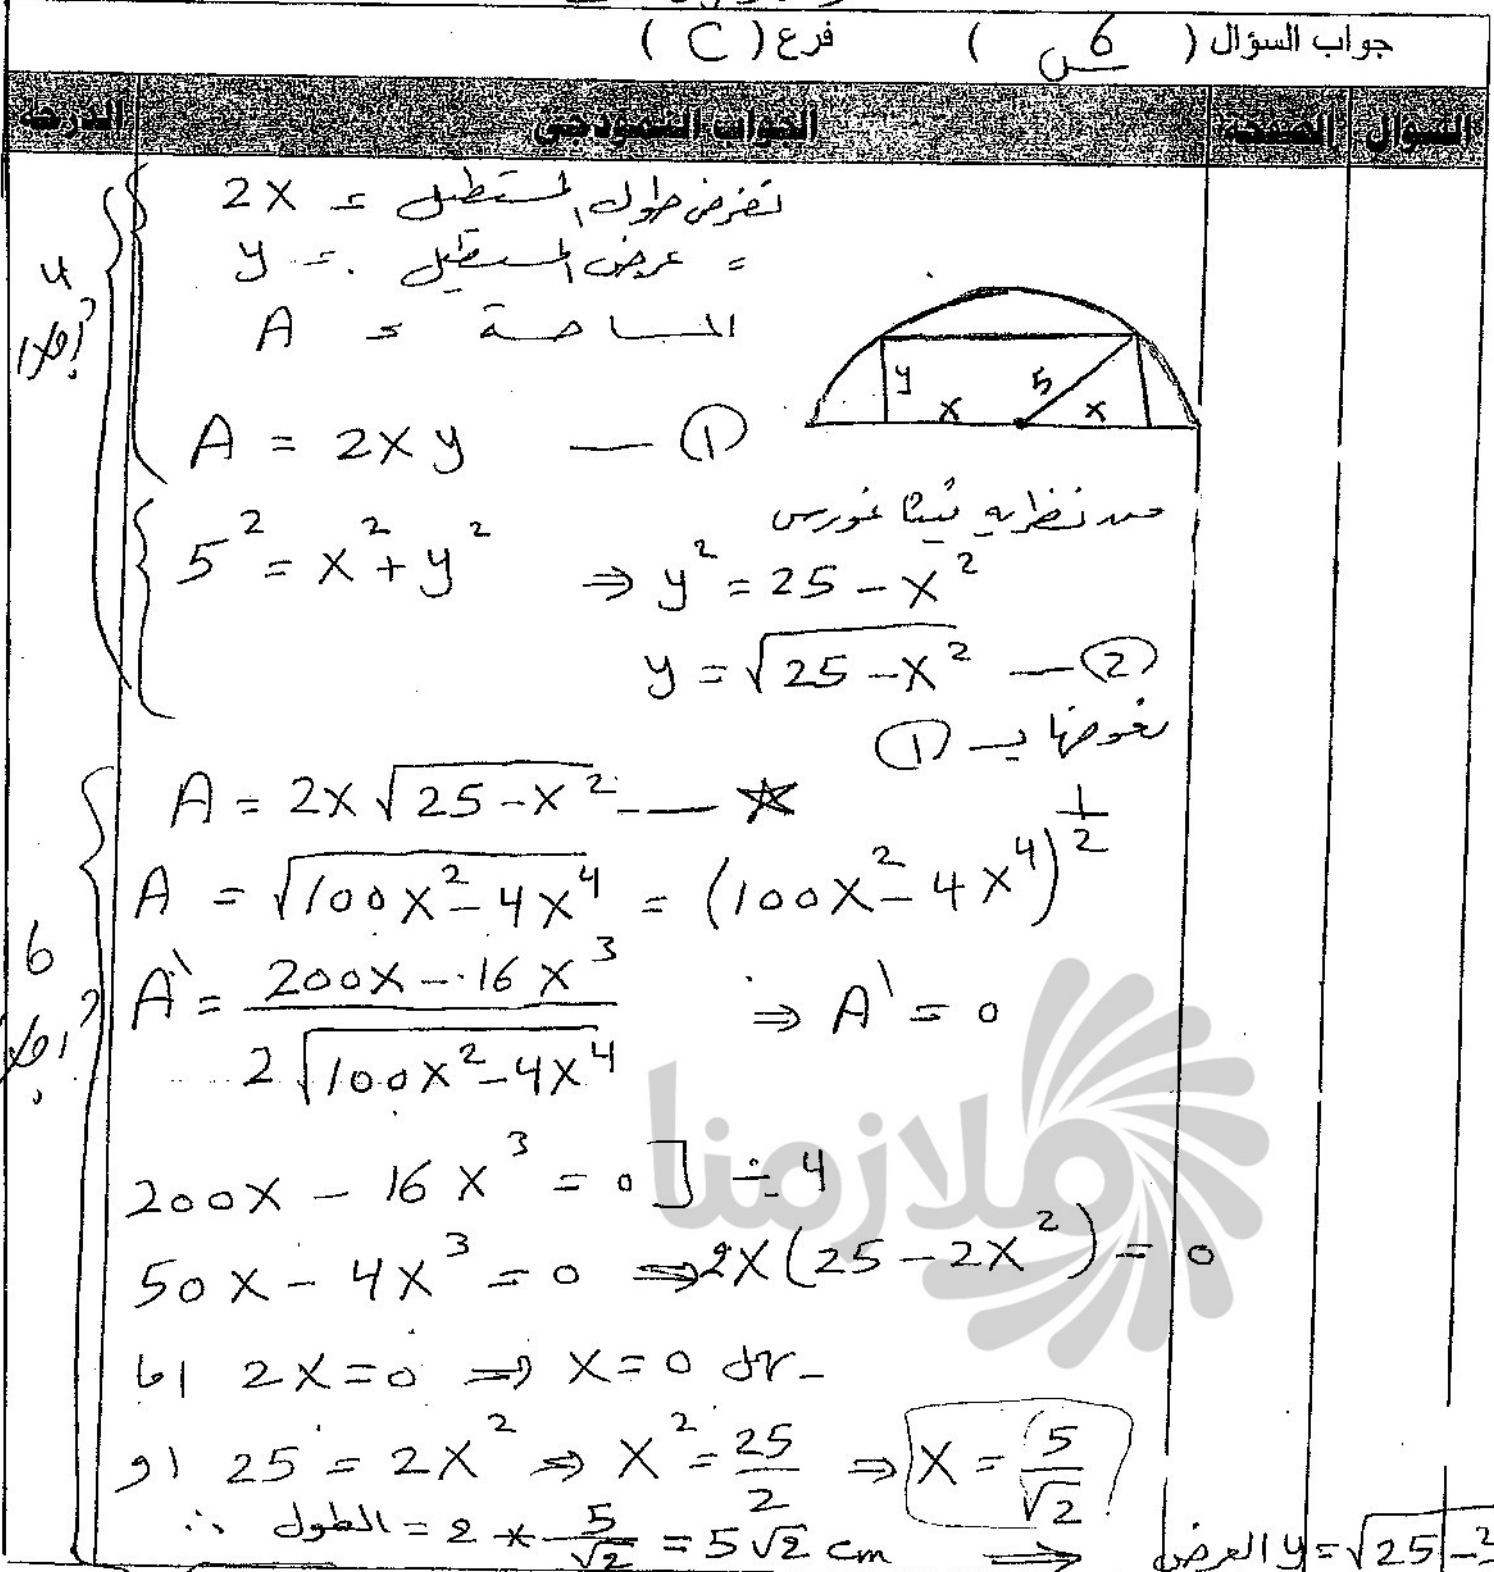 جواب السؤال ( س6 ) فرع ( C )
السؤال الصفحة الجواب النموذجي الدرجة
نفرض طول المستطيل = 2x
= عرض المستطيل = y
المساحة = A
4
5
y
x
x
A = 2xy — ①
من نظرية فيثاغورس
5² = x² + y² ⇒ y² = 25 - x²
y = √(25 - x²) — ②
نعوضها بـ ①
A = 2x√(25 - x²) — ☆
A = √(100x² - 4x⁴) = (100x² - 4x⁴)^(1/2)
6
A' = (200x - 16x³) / (2√(100x² - 4x⁴)) ⇒ A' = 0
ملازمنا
200x - 16x³ = 0] ÷ 4
50x - 4x³ = 0 ⇒ 2x(25 - 2x²) = 0
اما 2x = 0 ⇒ x = 0
او 25 = 2x² ⇒ x² = 25/2 ⇒ x = 5/√2
∴ الطول = 2 * 5/√2 = 5√2 cm ⇒ العرض y = √25 -